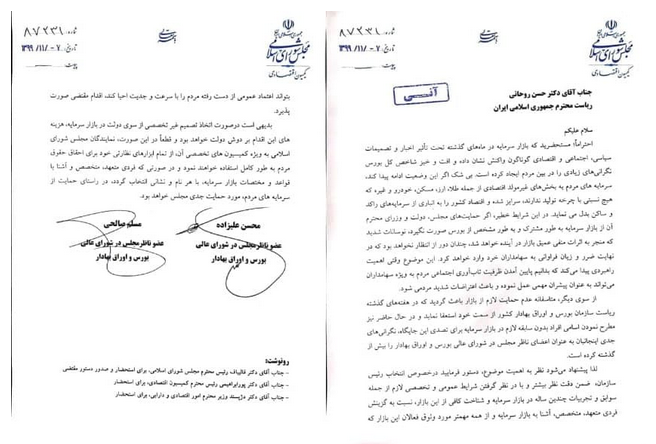 جمهوری اسلامی ایران
مجلس شورای اسلامی
کمیسیون اقتصادی
شماره: ۸۷۲۳۱
تاریخ: ۱۳۹۹/۱۱/۰۷
پیوست:
آنـی
جناب آقای دکتر حسن روحانی
ریاست محترم جمهوری اسلامی ایران
سلام علیکم
احتراماً؛ مستحضرید که بازار سرمایه در ماه‌های گذشته تحت تأثیر اخبار و تصمیمات
سیاسی، اجتماعی و اقتصادی گوناگون واکنش نشان داده و افت و خیز شاخص کل بورس
نگرانی‌های زیادی را در بین مردم ایجاد کرده است. بی شک اگر این وضعیت ادامه پیدا کند،
سرمایه های مردم به بخش‌های غیرمولد اقتصادی از جمله طلا، ارز، مسکن، خودرو و غیره که
هیچ نسبتی با چرخه تولید ندارند، سرازیر شده و اقتصاد کشور را به انباری از سرمایه‌های راکد
و ساکن بدل می نماید. در این شرایط خطیر، اگر حمایت‌های مجلس، دولت و وزرای محترم
آن از بازار سرمایه به طور مشترک و به طور مشخص از بورس صورت نگیرد، نوسانات شدید
که منجر به اثرات منفی عمیق بازار در آینده خواهد شد، چندان دور از انتظار نخواهد بود که در
نهایت ضرر و زیان فراوانی به سهامداران خرد وارد خواهد کرد. این موضوع وقتی اهمیت
راهبردی پیدا می‌کند که بدانیم پایین آمدن ظرفیت تاب‌آوری اجتماعی مردم به ویژه سهامداران
می‌تواند به عنوان پیشران مهمی عمل نموده و باعث اعتراضات شدید مردمی شود.
از سوی دیگر، متاسفانه عدم حمایت لازم از بازار باعث گردید که در هفته‌های گذشته
ریاست سازمان بورس و اوراق بهادار کشور از سمت خود استعفا نماید و در حال حاضر نیز
مطرح نمودن اسامی افراد بدون سابقه لازم در بازار سرمایه برای تصدی این جایگاه، نگرانی‌های
جدی اینجانبان به عنوان اعضای ناظر مجلس در شورای عالی بورس و اوراق بهادار را بیش از
گذشته کرده است.
لذا پیشنهاد می‌شود نظر به اهمیت موضوع، دستور فرمایید درخصوص انتخاب رئیس
سازمان، ضمن دقت نظر بیشتر و با در نظر گرفتن شرایط عمومی و تخصصی لازم از جمله
سوابق و تجربیات چندین ساله در بازار سرمایه و شناخت کافی از این بازار، نسبت به گزینش
فردی متعهد، متخصص، آشنا به بازار سرمایه و از همه مهمتر مورد وثوق فعالان این بازار که
جمهوری اسلامی ایران
مجلس شورای اسلامی
کمیسیون اقتصادی
شماره: ۸۷۲۳۱
تاریخ: ۱۳۹۹/۱۱/۰۷
پیوست:
بتواند اعتماد عمومی از دست رفته مردم را با سرعت و جدیت احیا کند، اقدام مقتضی صورت
پذیرد.
بدیهی است درصورت اتخاذ تصمیم غیر تخصصی از سوی دولت در بازار سرمایه، هزینه
های این اقدام بر دوش دولت خواهد بود و قطعاً در این صورت، نمایندگان مجلس شورای
اسلامی به ویژه کمیسیون های تخصصی آن، از تمام ابزارهای نظارتی خود برای احقاق حقوق
مردم به طور کامل استفاده خواهند نمود و در صورتی که فردی متعهد، متخصص و آشنا با
قواعد و مختصات بازار سرمایه، با هر نام و نشانی انتخاب گردد، در راستای حمایت از
سرمایه های مردم، مورد حمایت جدی مجلس خواهد بود.
محسن علیزاده
عضو ناظر مجلس در شورای عالی
بورس و اوراق بهادار
مسلم صالحی
عضو ناظر مجلس در شورای عالی
بورس و اوراق بهادار
رونوشت:
- جناب آقای دکتر قالیباف رئیس محترم مجلس شورای اسلامی، برای استحضار و صدور دستور مقتضی
- جناب آقای دکتر پورابراهیمی رئیس محترم کمیسیون اقتصادی، برای استحضار
- جناب آقای دکتر دژپسند وزیر محترم امور اقتصادی و دارایی، برای استحضار